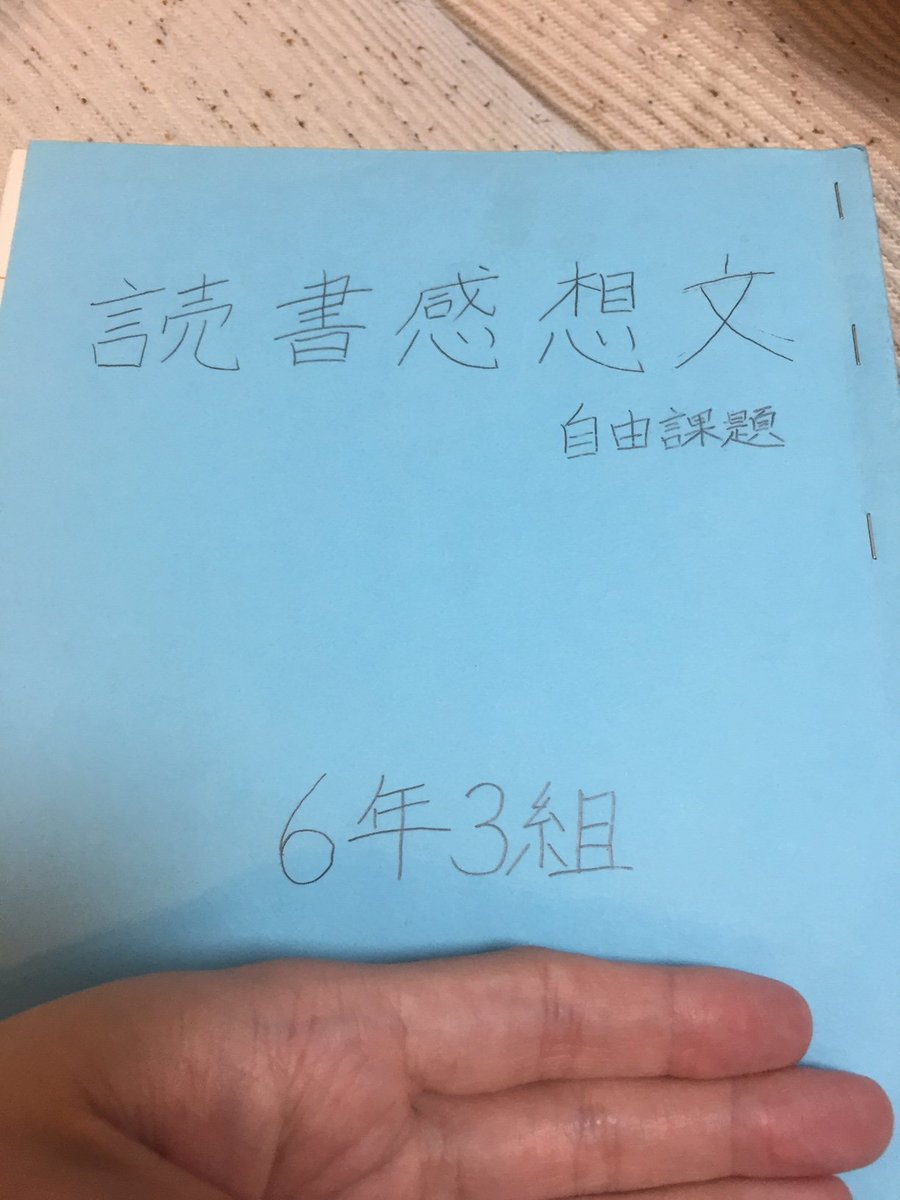 読書感想文
自由課題
6年3組